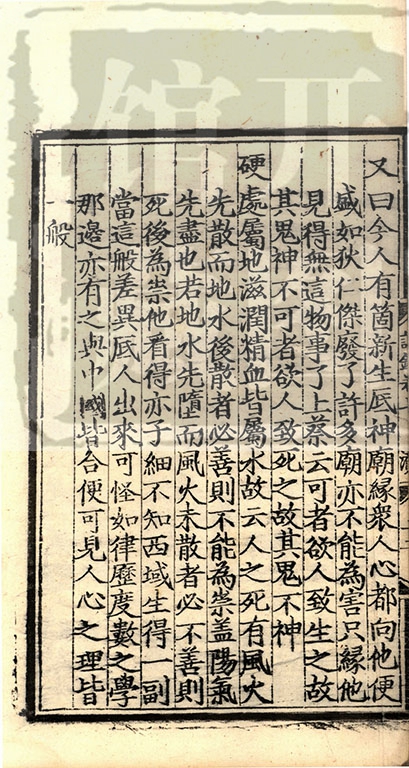 又曰今人有箇新生底神廟緣衆人心都向他便
盛如狄仁傑廢了許多廟亦不能為害只緣他
見得無這物事了上蔡云可者欲人致生之故
其鬼神不可者欲人致死之故其鬼不神
硬處屬地滋潤精血皆屬水故云人之死有風火
先散而地水後散者必善則不能為祟盖陽氣
先盡也若地水先隨而風火未散者必不善則
死後為祟他看得亦子細不知西域生得一副
當這般差異底人出來可怪如律曆度數之學
那邊亦有之與中國皆合便可見人心之理皆
一般
開館